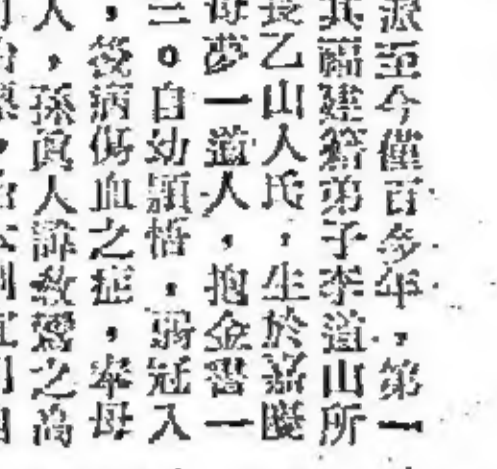 派至今僅百多年,第一
其福建籍弟子李道山所
長乙山人氏,生於嘉慶
母夢一道人,抱金書一
。自幼穎悟,弱冠入
,後病傷血之症,奉母
人,孫真人諱教鸞之高